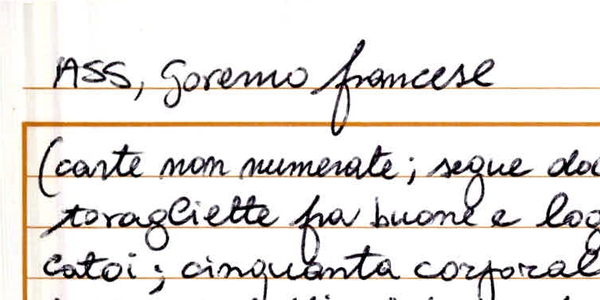 ASS, Goremo francese
(carte non numerate; segue doc
toragliette fra buone e log
catoi; cinquanta corporal